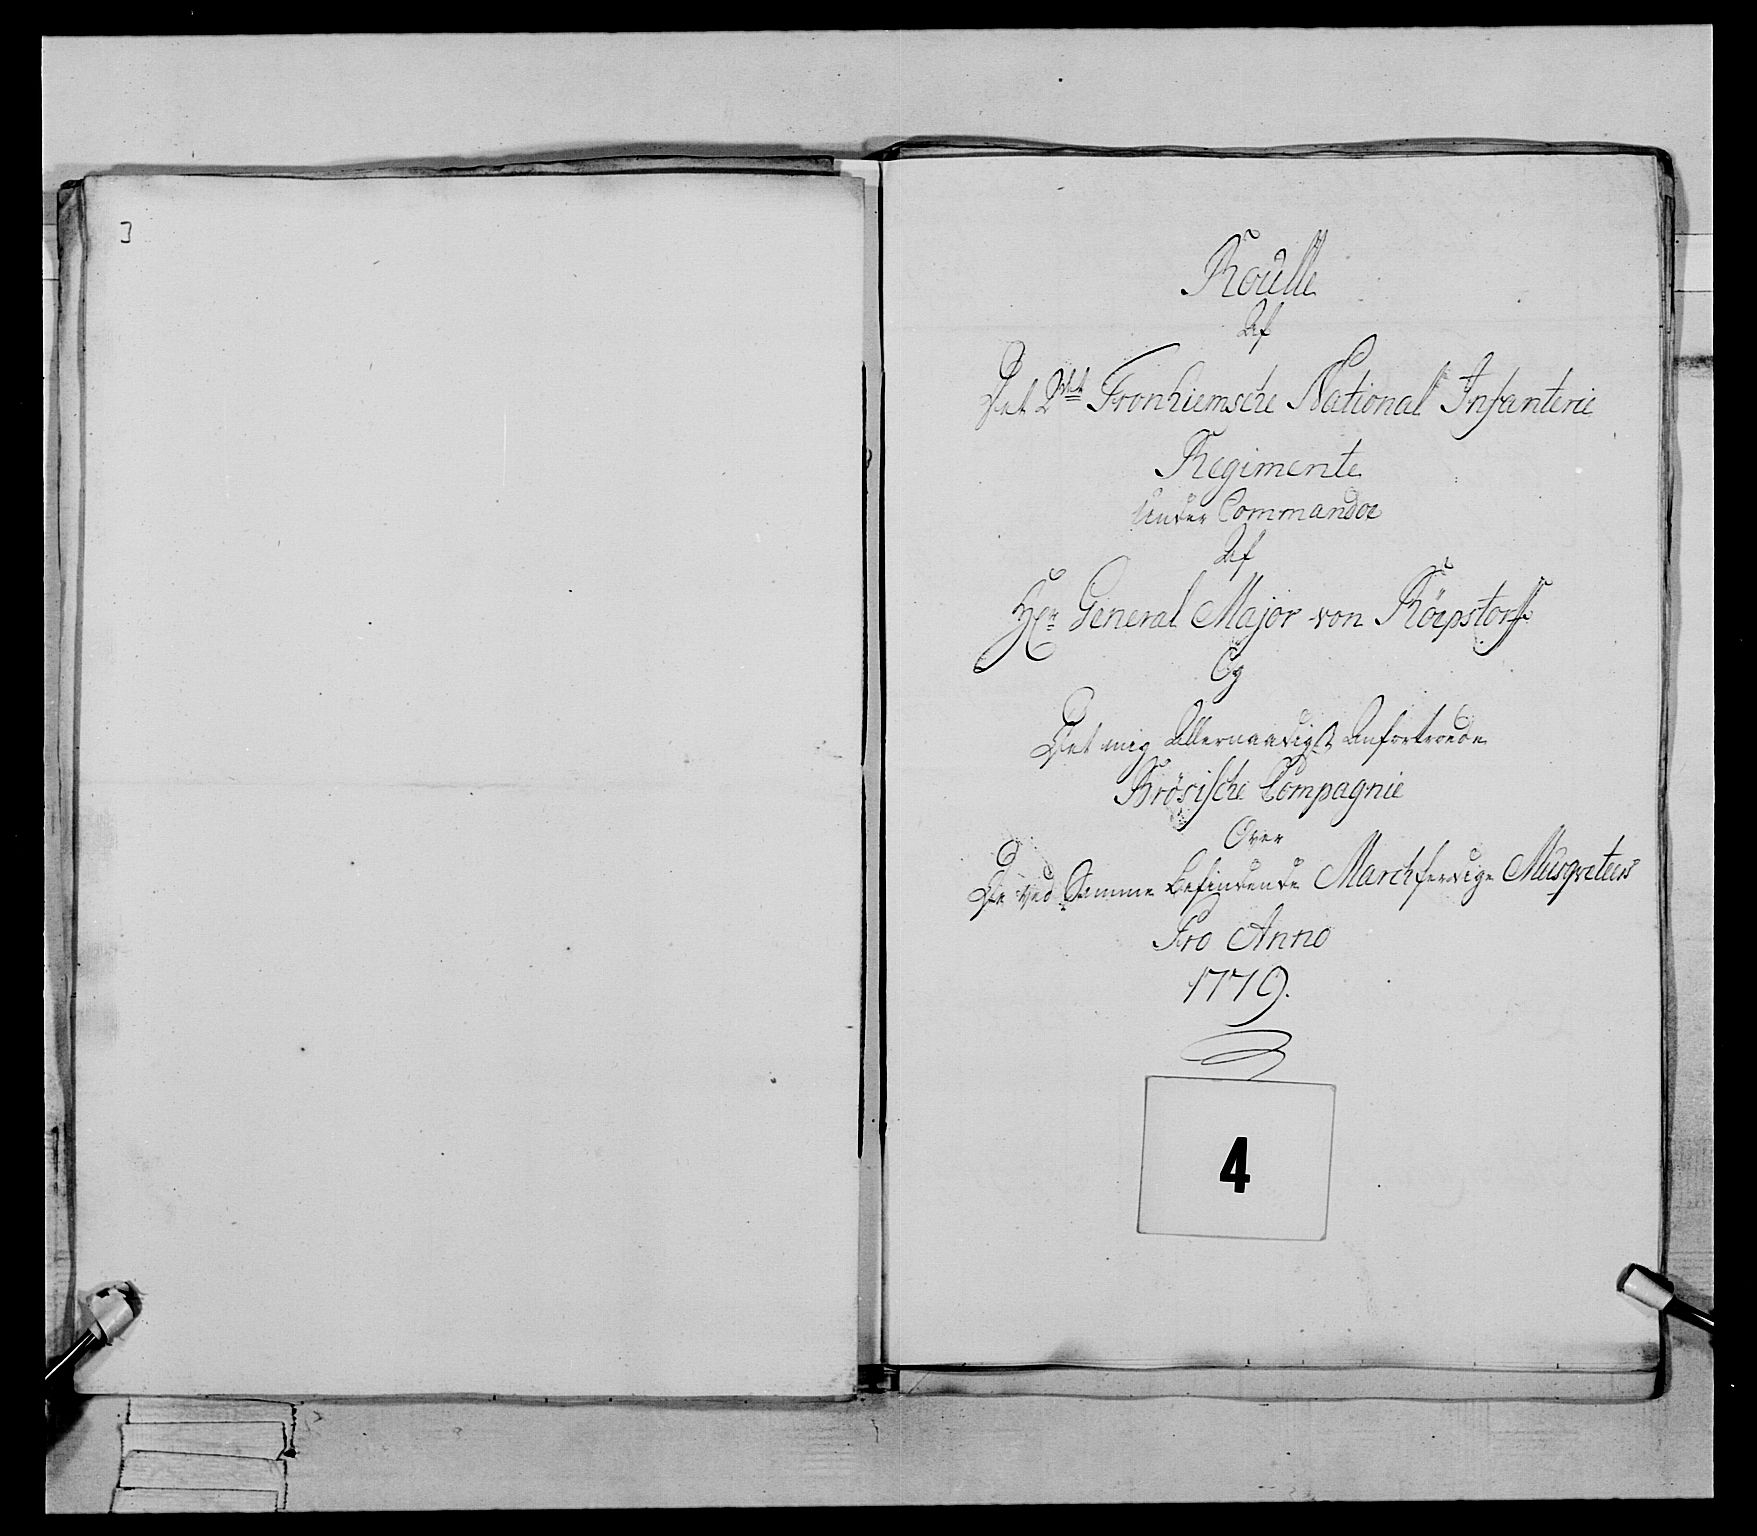 3
Roulle
Af
Det 2det Tronhiemsche National Infanterie
Regimente
under Commandoe
Af
Hr General Major von Röepstorff
Og
Det mig Allernaadigst Anfortroede
Krösische Compagnie
Over
De ved Samme befindende Marchferdige Musqveteers
Pro Anno
1779.
4